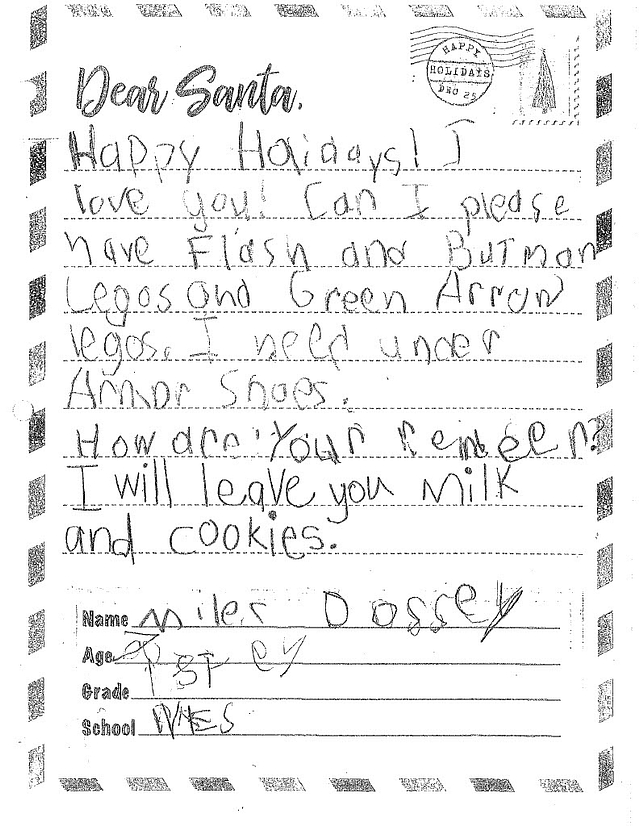 HAPPY
HOLIDAYS
DEC 25
Dear Santa,
Happy Haidays! I
love you! Can I please
have Flash and Butman
Legos and Green Arrow
legos. I need under
Armor Shoes.
How are Your Renteer?
I will leave you Milk
and cookies.
Name Miles Dossey
Age
Grade
School WES